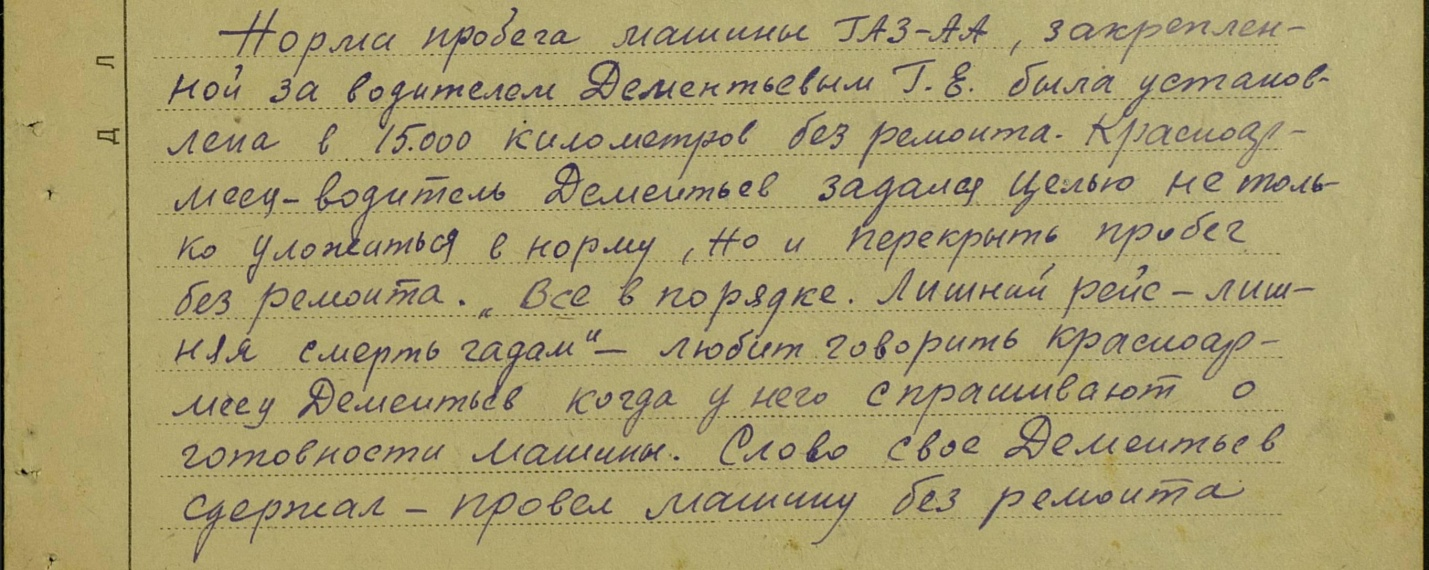 Норма пробега машины ГАЗ-АА, закреплен-
ной за водителем Дементьевым Г. Е. была установ-
лена в 15.000 километров без ремонта. Красноар-
меец-водитель Дементьев задался целью не толь-
ко уложиться в норму, но и перекрыть пробег
без ремонта. „Все в порядке. Лишний рейс – лиш-
няя смерть гадам“ – любит говорить красноар-
меец Дементьев когда у него спрашивают о
готовности машины. Слово свое Дементьев
сдержал – провел машину без ремонта
Д Л